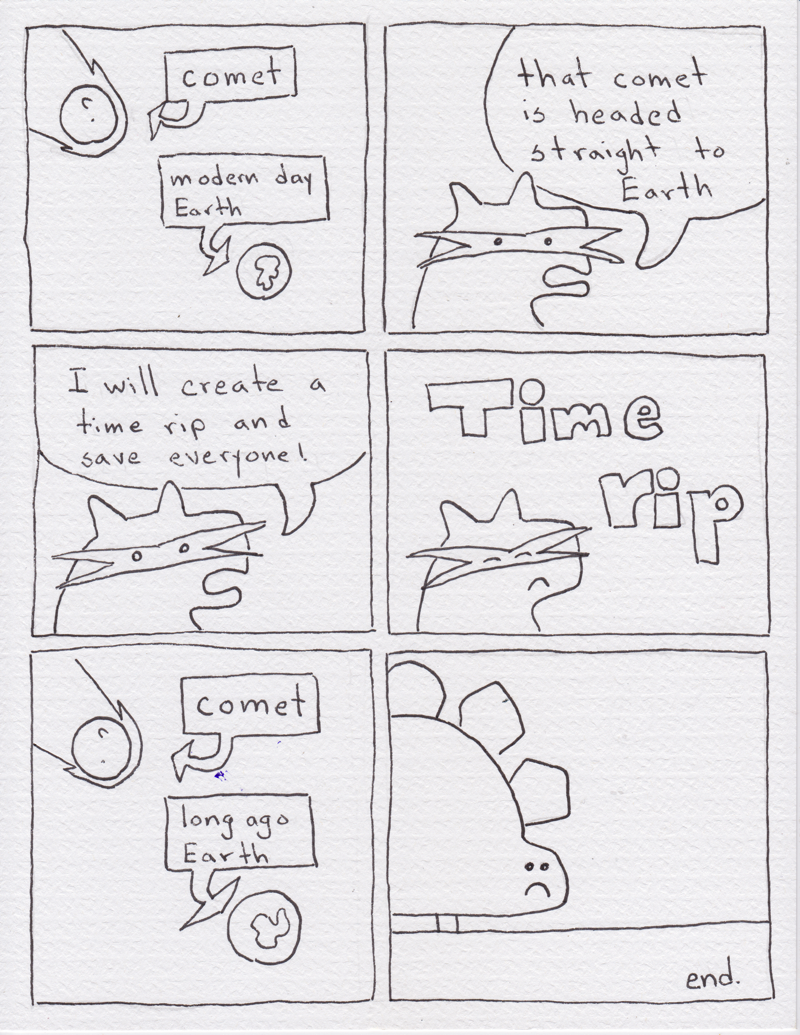 comet
modern day
Earth
that comet
is headed
straight to
Earth
I will create a
time rip and
save everyone!
Time
rip
comet
long ago
Earth
end.